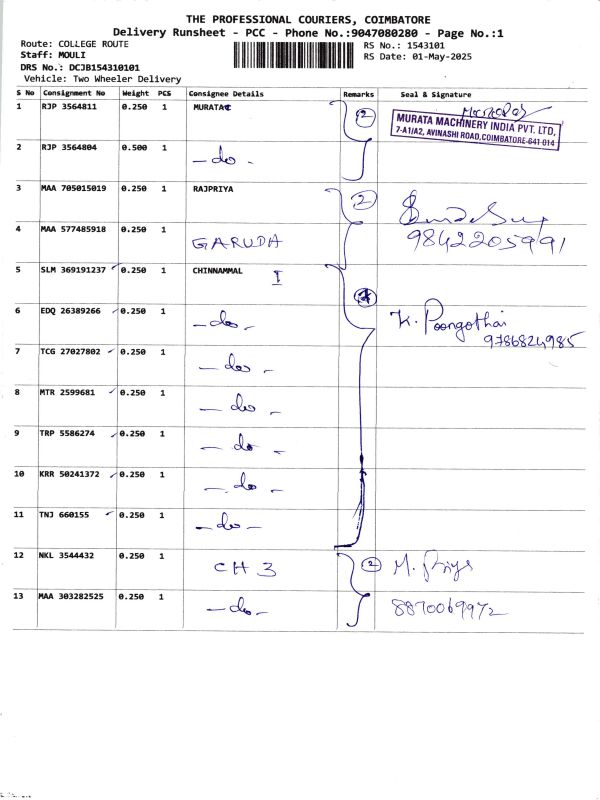 THE PROFESSIONAL COURIERS, COIMBATORE
Delivery Runsheet - PCC - Phone No.:9047080280 - Page No.:1
Route: COLLEGE ROUTE
RS No.: 1543101
Staff: MOULI
RS Date: 01-May-2025
DRS No.: DCJB154310101
Vehicle: Two Wheeler Delivery
S No Consignment No Weight PCS Consignee Details Remarks Seal & Signature
1 RJP 3564811 0.250 1 MURATA 2
MURATA MACHINERY INDIA PVT. LTD,
7-A1/A2, AVINASHI ROAD, COIMBATORE-641 014
2 RJP 3564804 0.500 1 -do-
3 MAA 705015019 0.250 1 RAJPRIYA 2
4 MAA 577485918 0.250 1 GARUDA 9842205991
5 SLM 369191237 0.250 1 CHINNAMMAL I
6 EDQ 26389266 0.250 1 -do- K. Poongothai
9786824985
7 TCG 27027802 0.250 1 -do-
8 MTR 2599681 0.250 1 -do-
9 TRP 5586274 0.250 1 -do-
10 KRR 50241372 0.250 1 -do-
11 TNJ 660155 0.250 1 -do-
12 NKL 3544432 0.250 1 CH 3 2 M. Priya
13 MAA 303282525 0.250 1 -do- 8870069972